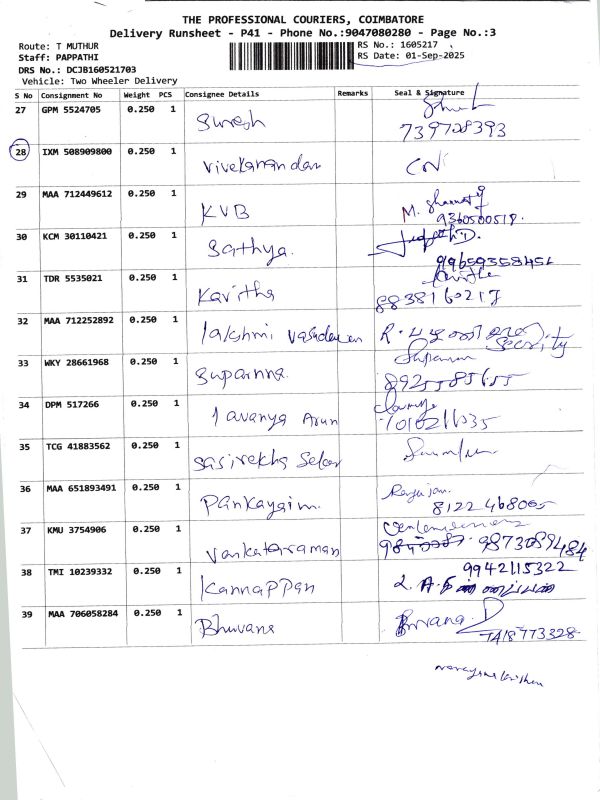 THE PROFESSIONAL COURIERS, COIMBATORE
Delivery Runsheet - P41 - Phone No.:9047080280 - Page No.:3
Route: T MUTHUR
RS No.: 1605217
Staff: PAPPATHI
RS Date: 01-Sep-2025
DRS No.: DCJB160521703
Vehicle: Two Wheeler Delivery
S No Consignment No Weight PCS Consignee Details Remarks Seal & Signature
27 GPM 5524705 0.250 1 Suresh
739728393
28 IXM 508909800 0.250 1 Vivekanandan
29 MAA 712449612 0.250 1 KVB M.
9360500519.
30 KCM 30110421 0.250 1 Sathya.
31 TDR 5535021 0.250 1 Kavitha Kavitha
8838160217
32 MAA 712252892 0.250 1 lakshmi vasudevan R.
Security
33 WKY 28661968 0.250 1 Suparnna.
8925585655
34 DPM 517266 0.250 1 lavanya Arun
35 TCG 41883562 0.250 1 Sasirekha Selvar
36 MAA 651893491 0.250 1 Pankayaim. Rajajan.
8122468065
37 KMU 3754906 0.250 1 Vankataraman
9873089484
38 TMI 10239332 0.250 1 Kannappan 9942115322
39 MAA 706058284 0.250 1 Bhuvana Buvana
7418773328